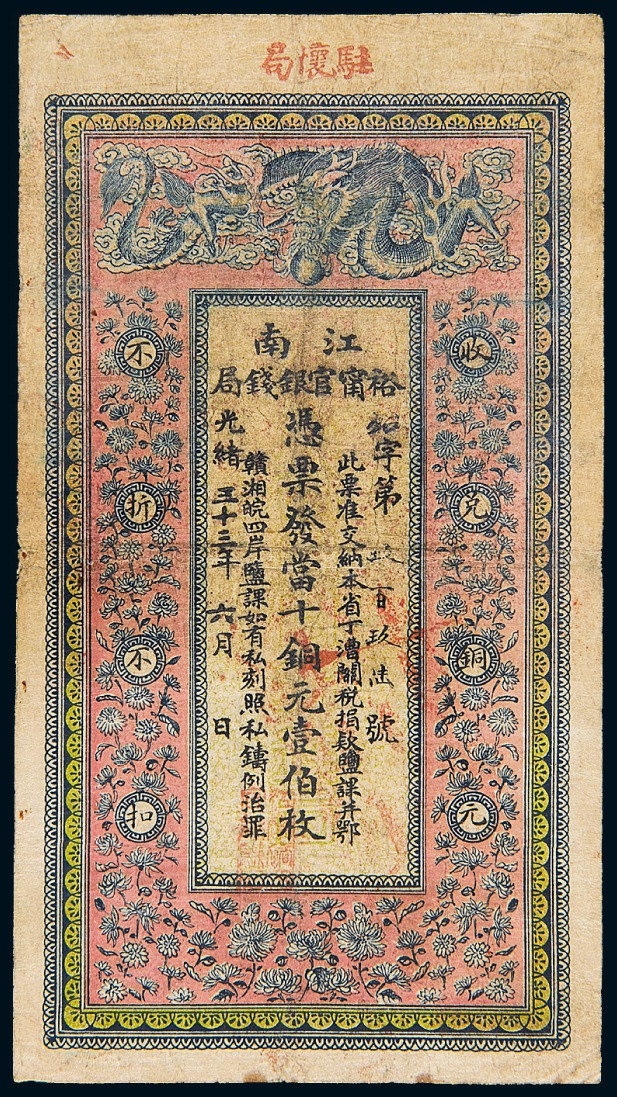 駐懷局
江南
裕甯官銀錢局
字第 百玖 號
此票准交納本省丁漕關稅捐款鹽課并鄂
憑票發當十銅元壹佰枚
贛湘皖四岸鹽課如有私刻照私鑄例治罪
光緒三十三年六月 日
收兌銅元
不折不扣